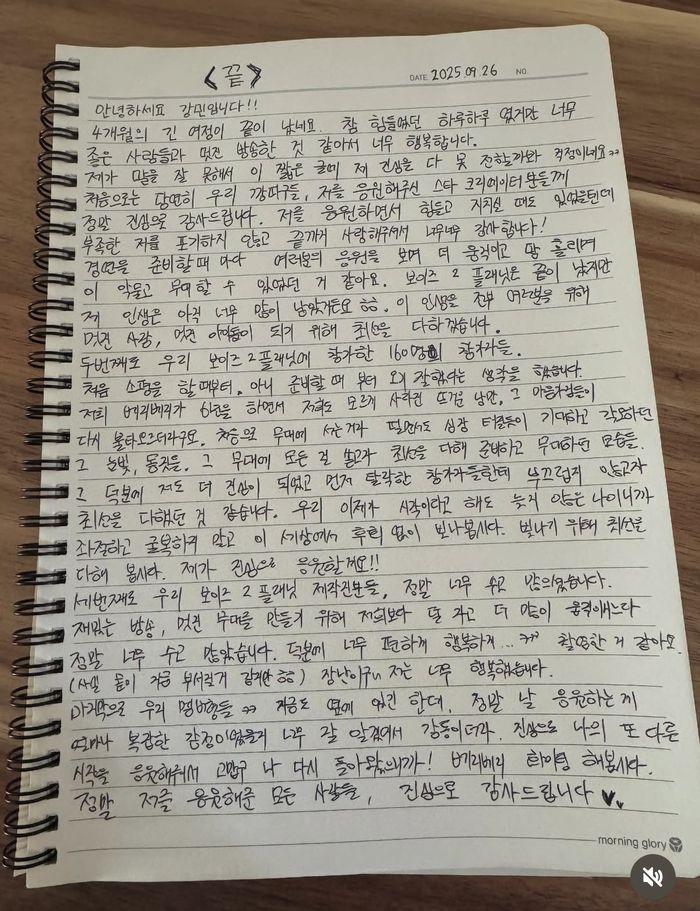 <끝>
DATE 2025.09.26 NO.
안녕하세요 강민입니다!!
4개월의 긴 여정이 끝이 났네요. 참 힘들었던 하루하루 였지만 너무
좋은 사람들과 멋진 방송한 것 같아서 너무 행복합니다.
제가 말을 잘 못해서 이 짧은 글에 제 진심을 다 못 전할까봐 걱정이네요ㅠㅠ
처음으로는 당연히 우리 깡파구들, 저를 응원해주신 스타 크리에이터분들께
정말 진심으로 감사드립니다. 저를 응원하면서 힘들고 지치실 때도 있었을텐데
부족한 저를 포기하지 않고 끝까지 사랑해주셔서 너무너무 감사합니다!
경연을 준비할 때 마다 여러분의 응원을 보며 더 움직이고 땀 흘리며
이 악물고 무대할 수 있었던 거 같아요. 보이즈 2 플래닛은 끝이 났지만
제 인생은 아직 너무 많이 남았거든요 ㅎㅎ. 이 인생을 전부 여러분을 위해
멋진 사람, 멋진 아이돌이 되기 위해 최선을 다하겠습니다.
두번째로 우리 보이즈 2 플래닛에 참가한 160명의 참가자들.
처음 쇼핑을 할 때부터. 아니 준비할 때 부터 오기 잘했다는 생각을 했습니다.
저희 베리베리가 6년을 하면서 저희도 모르게 사라진 뜨거운 낭만. 그 마음가짐들이
다시 불타오르더라구요. 처음으로 무대에 서는거라 떨면서도 심장 터질듯이 기대하고 각오하던
그 눈빛, 몸짓들. 그 무대에 모든 걸 쏟고자 최선을 다해 준비하고 무대하던 모습들.
그 덕분에 저도 더 진심이 되었고 먼저 탈락한 참가자들한테 부끄럽지 않고자
최선을 다했던 것 같습니다. 우리 이제가 시작이라고 해도 늦지 않은 나이니까
좌절하고 굴복하지 말고 이 세상에서 후회 없이 빛나봅시다. 빛나기 위해 최선을
다해 봅시다. 제가 진심으로 응원할게요!!
세번째로 우리 보이즈 2 플래닛 제작진분들, 정말 너무 수고 많으셨습니다.
재밌는 방송, 멋진 무대를 만들기 위해 저희보다 덜 자고 더 많이 움직이느라
정말 너무 수고 많았습니다. 덕분에 너무 편하게 행복하게... ㅋㅋ 촬영한 거 같아요.
(사실 몸이 가끔 부서질거 같지만 ㅎㅎ) 장난이구 저는 너무 행복했습니다.
마지막으로 우리 멤버형들 ㅋㅋ 지금도 옆에 있긴 한데. 정말 날 응원하는게
얼마나 복잡한 감정이었을지 너무 잘 알겠어서 감동이더라. 진심으로 나의 또 다른
시작을 응원해줘서 고맙구 나 다시 돌아왔으니까! 베리베리 화이팅 해봅시다.
정말 저를 응원해준 모든 사람들, 진심으로 감사드립니다 ♥♥
morning glory